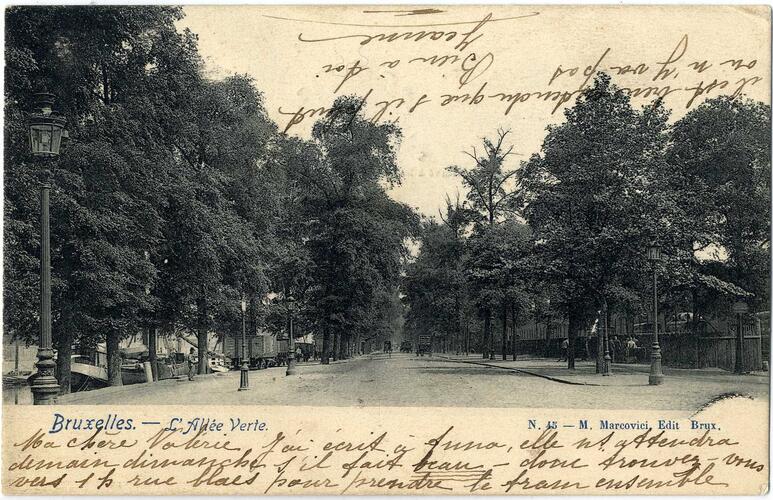 Bruxelles. — L'Allée Verte.
N. 45 — M. Marcovici, Edit Brux.
Ma chère Valérie J'ai écrit à Anna, elle ns attendra
demain dimanche s'il fait beau – donc trouvez-vous
vers 1h rue blaes pour prendre le tram ensemble
il est bien entendu que s'il pleut
on n'y va pas
Bien à toi
Jeanne